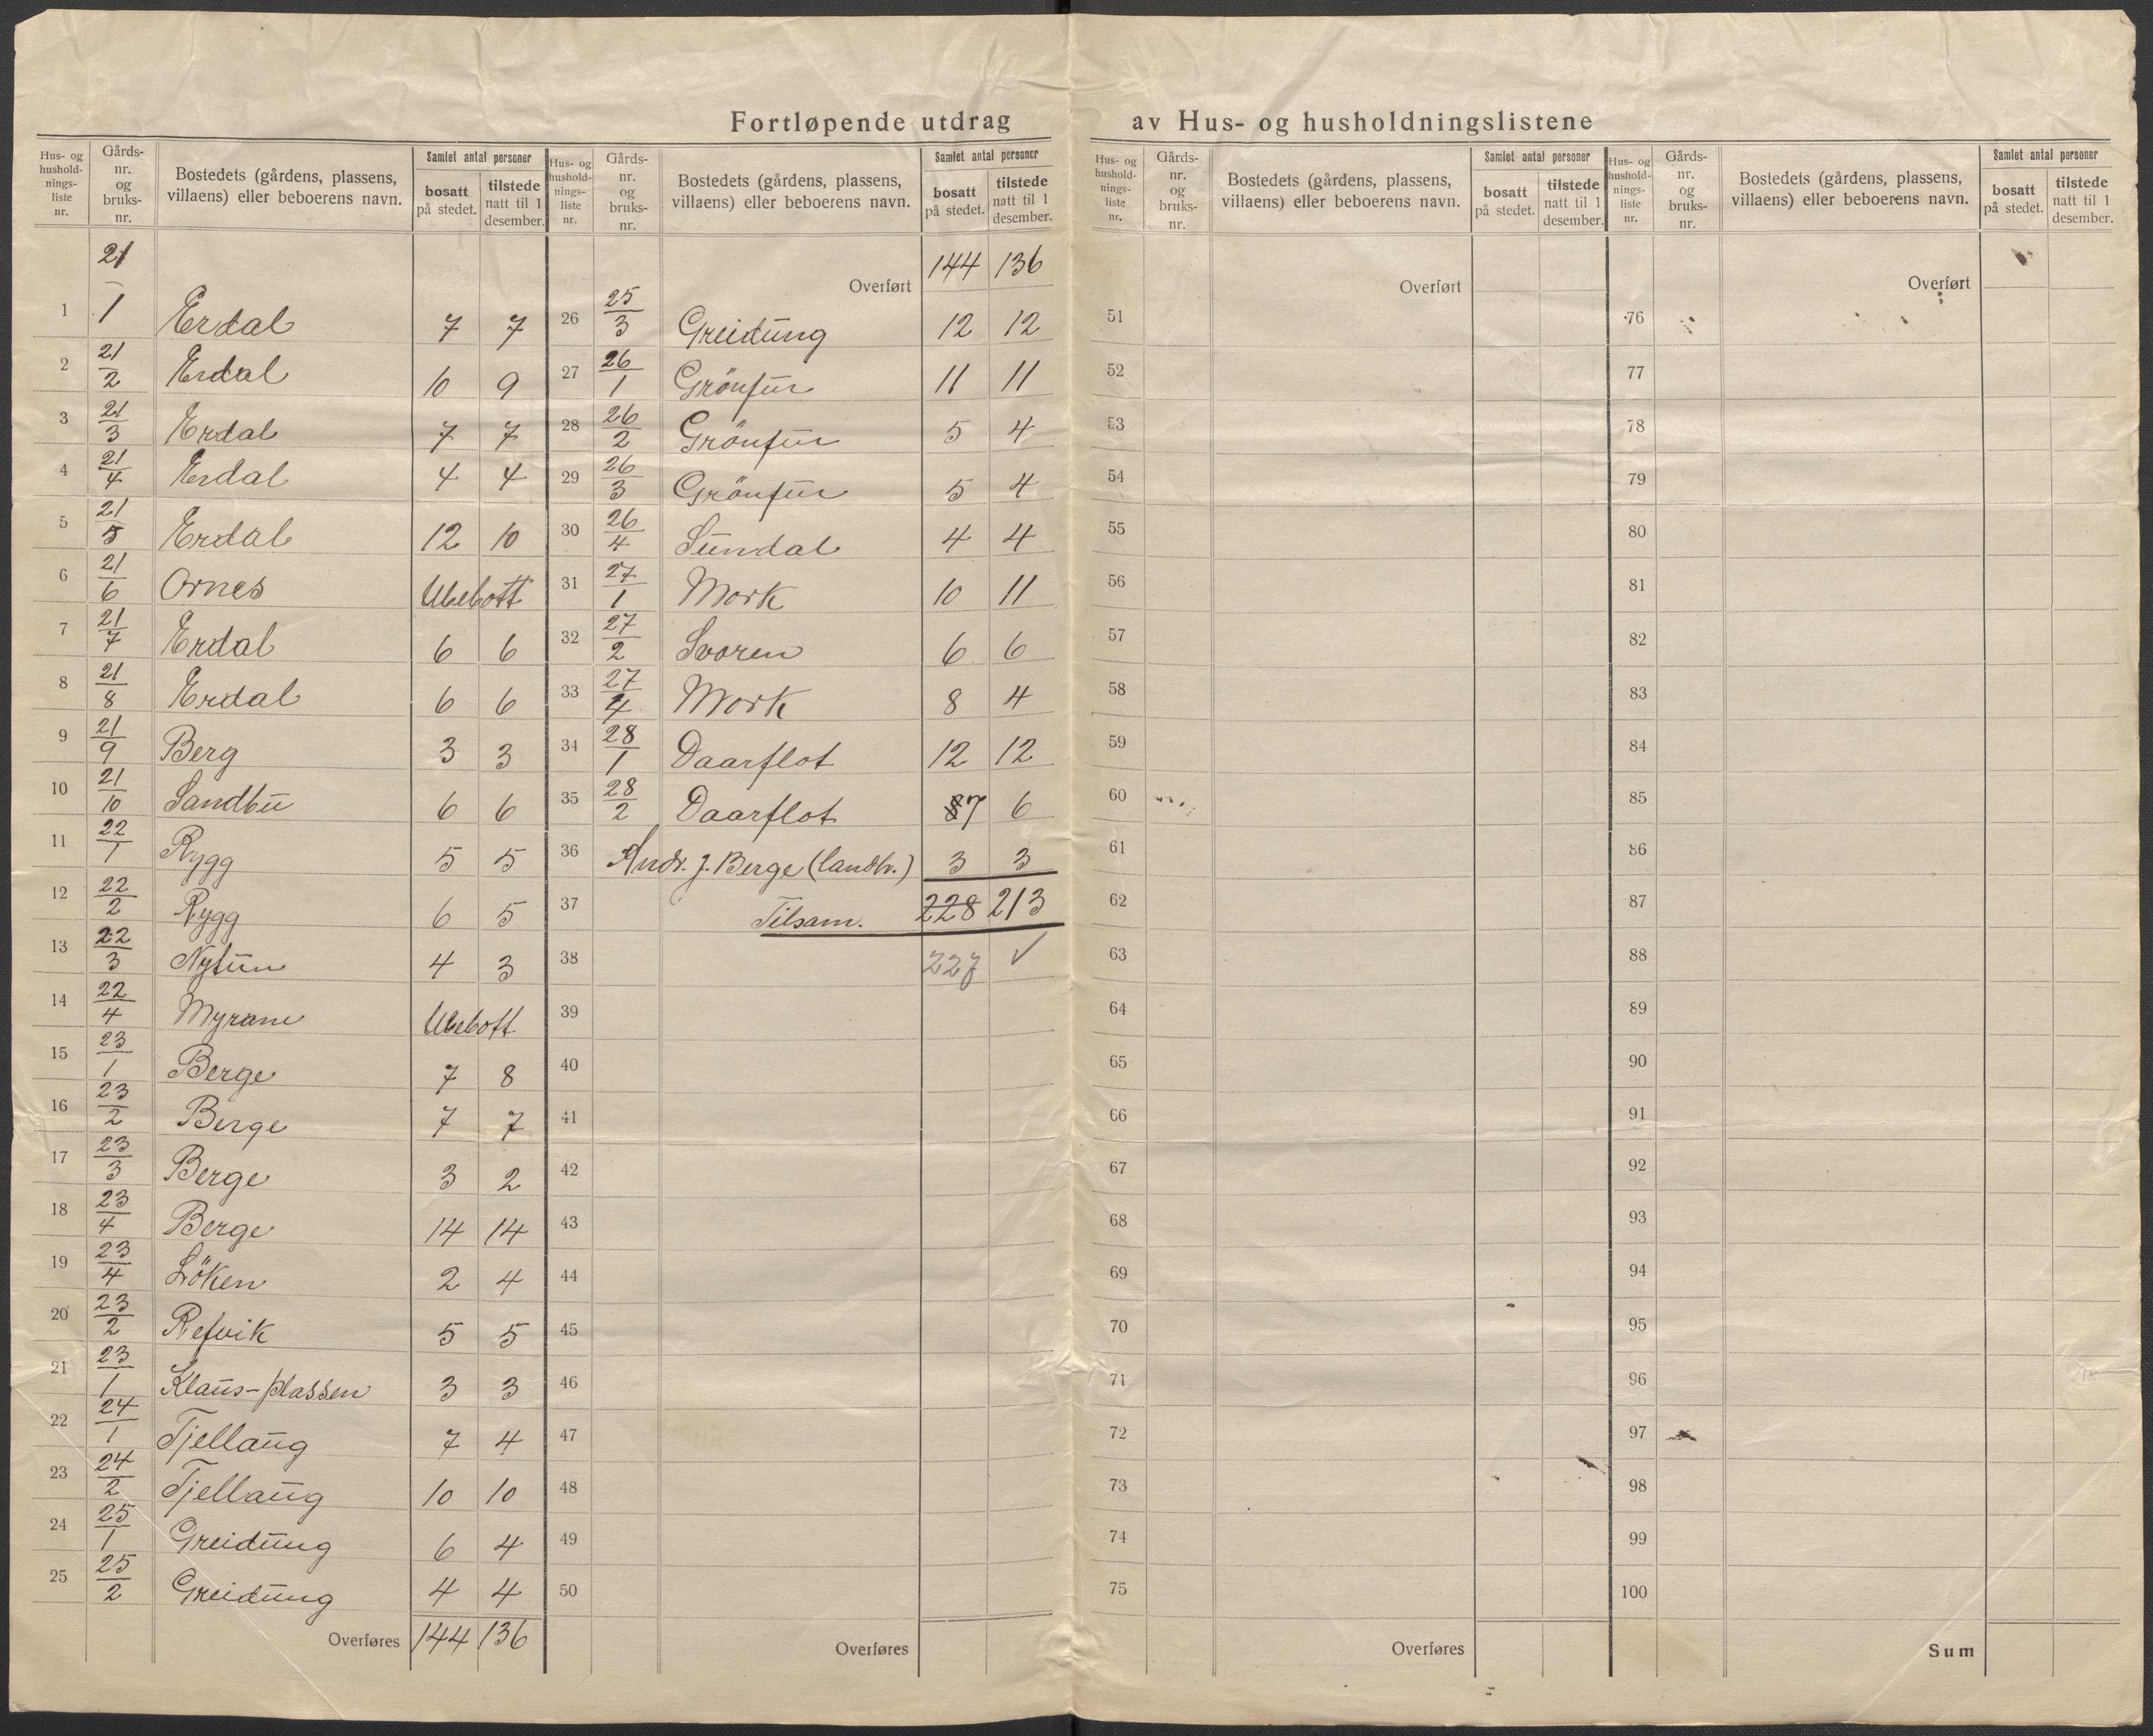 Fortløpende utdrag av Hus- og husholdningslistene
Hus- og hushold- nings- liste nr. | Gårds- nr. og bruks- nr. | Bostedets (gårdens, plassens, villaens) eller beboerens navn. | Samlet antal personer | bosatt på stedet. | tilstede natt til 1 desember.
1 21/1 Erdal 7 7
2 21/2 Erdal 10 9
3 21/3 Erdal 7 7
4 21/4 Erdal 4 4
5 21/5 Erdal 12 10
6 21/6 Ornes Ubebott
7 21/7 Erdal 6 6
8 21/8 Erdal 6 6
9 21/9 Berg 3 3
10 21/10 Sandbu 6 6
11 22/1 Rygg 5 5
12 22/2 Rygg 6 5
13 22/3 Nytun 4 3
14 22/4 Myrane Ubebott
15 23/1 Berge 7 8
16 23/2 Berge 7 7
17 23/3 Berge 3 2
18 23/4 Berge 14 14
19 23/4 Löken 2 4
20 23/2 Refvik 5 5
21 23/1 Klaus-plassen 3 3
22 24/1 Tjellaug 7 4
23 24/2 Tjellaug 10 10
24 25/1 Greidung 6 4
25 25/2 Greidung 4 4
Overføres 144 136
Hus- og hushold- nings- liste nr. | Gårds- nr. og bruks- nr. | Bostedets (gårdens, plassens, villaens) eller beboerens navn. | Samlet antal personer | bosatt på stedet. | tilstede natt til 1 desember.
Overført 144 136
26 25/3 Greidung 12 12
27 26/1 Grönfur 11 11
28 26/2 Grönfur 5 4
29 26/3 Grönfur 5 4
30 26/4 Sundal 4 4
31 27/1 Mork 10 11
32 27/2 Svoren 6 6
33 27/4 Mork 8 4
34 28/1 Daarflot 12 12
35 28/2 Daarflot 87 6
36 Andr. J. Berge (landbr.) 3 3
37 Tilsam. 228 213
38 227 ✓
39
40
41
42
43
44
45
46
47
48
49
50
Overføres
Hus- og hushold- nings- liste nr. | Gårds- nr. og bruks- nr. | Bostedets (gårdens, plassens, villaens) eller beboerens navn. | Samlet antal personer | bosatt på stedet. | tilstede natt til 1 desember.
Overført
51
52
53
54
55
56
57
58
59
60
61
62
63
64
65
66
67
68
69
70
71
72
73
74
75
Overføres
Hus- og hushold- nings- liste nr. | Gårds- nr. og bruks- nr. | Bostedets (gårdens, plassens, villaens) eller beboerens navn. | Samlet antal personer | bosatt på stedet. | tilstede natt til 1 desember.
Overført
76
77
78
79
80
81
82
83
84
85
86
87
88
89
90
91
92
93
94
95
96
97
98
99
100
Sum